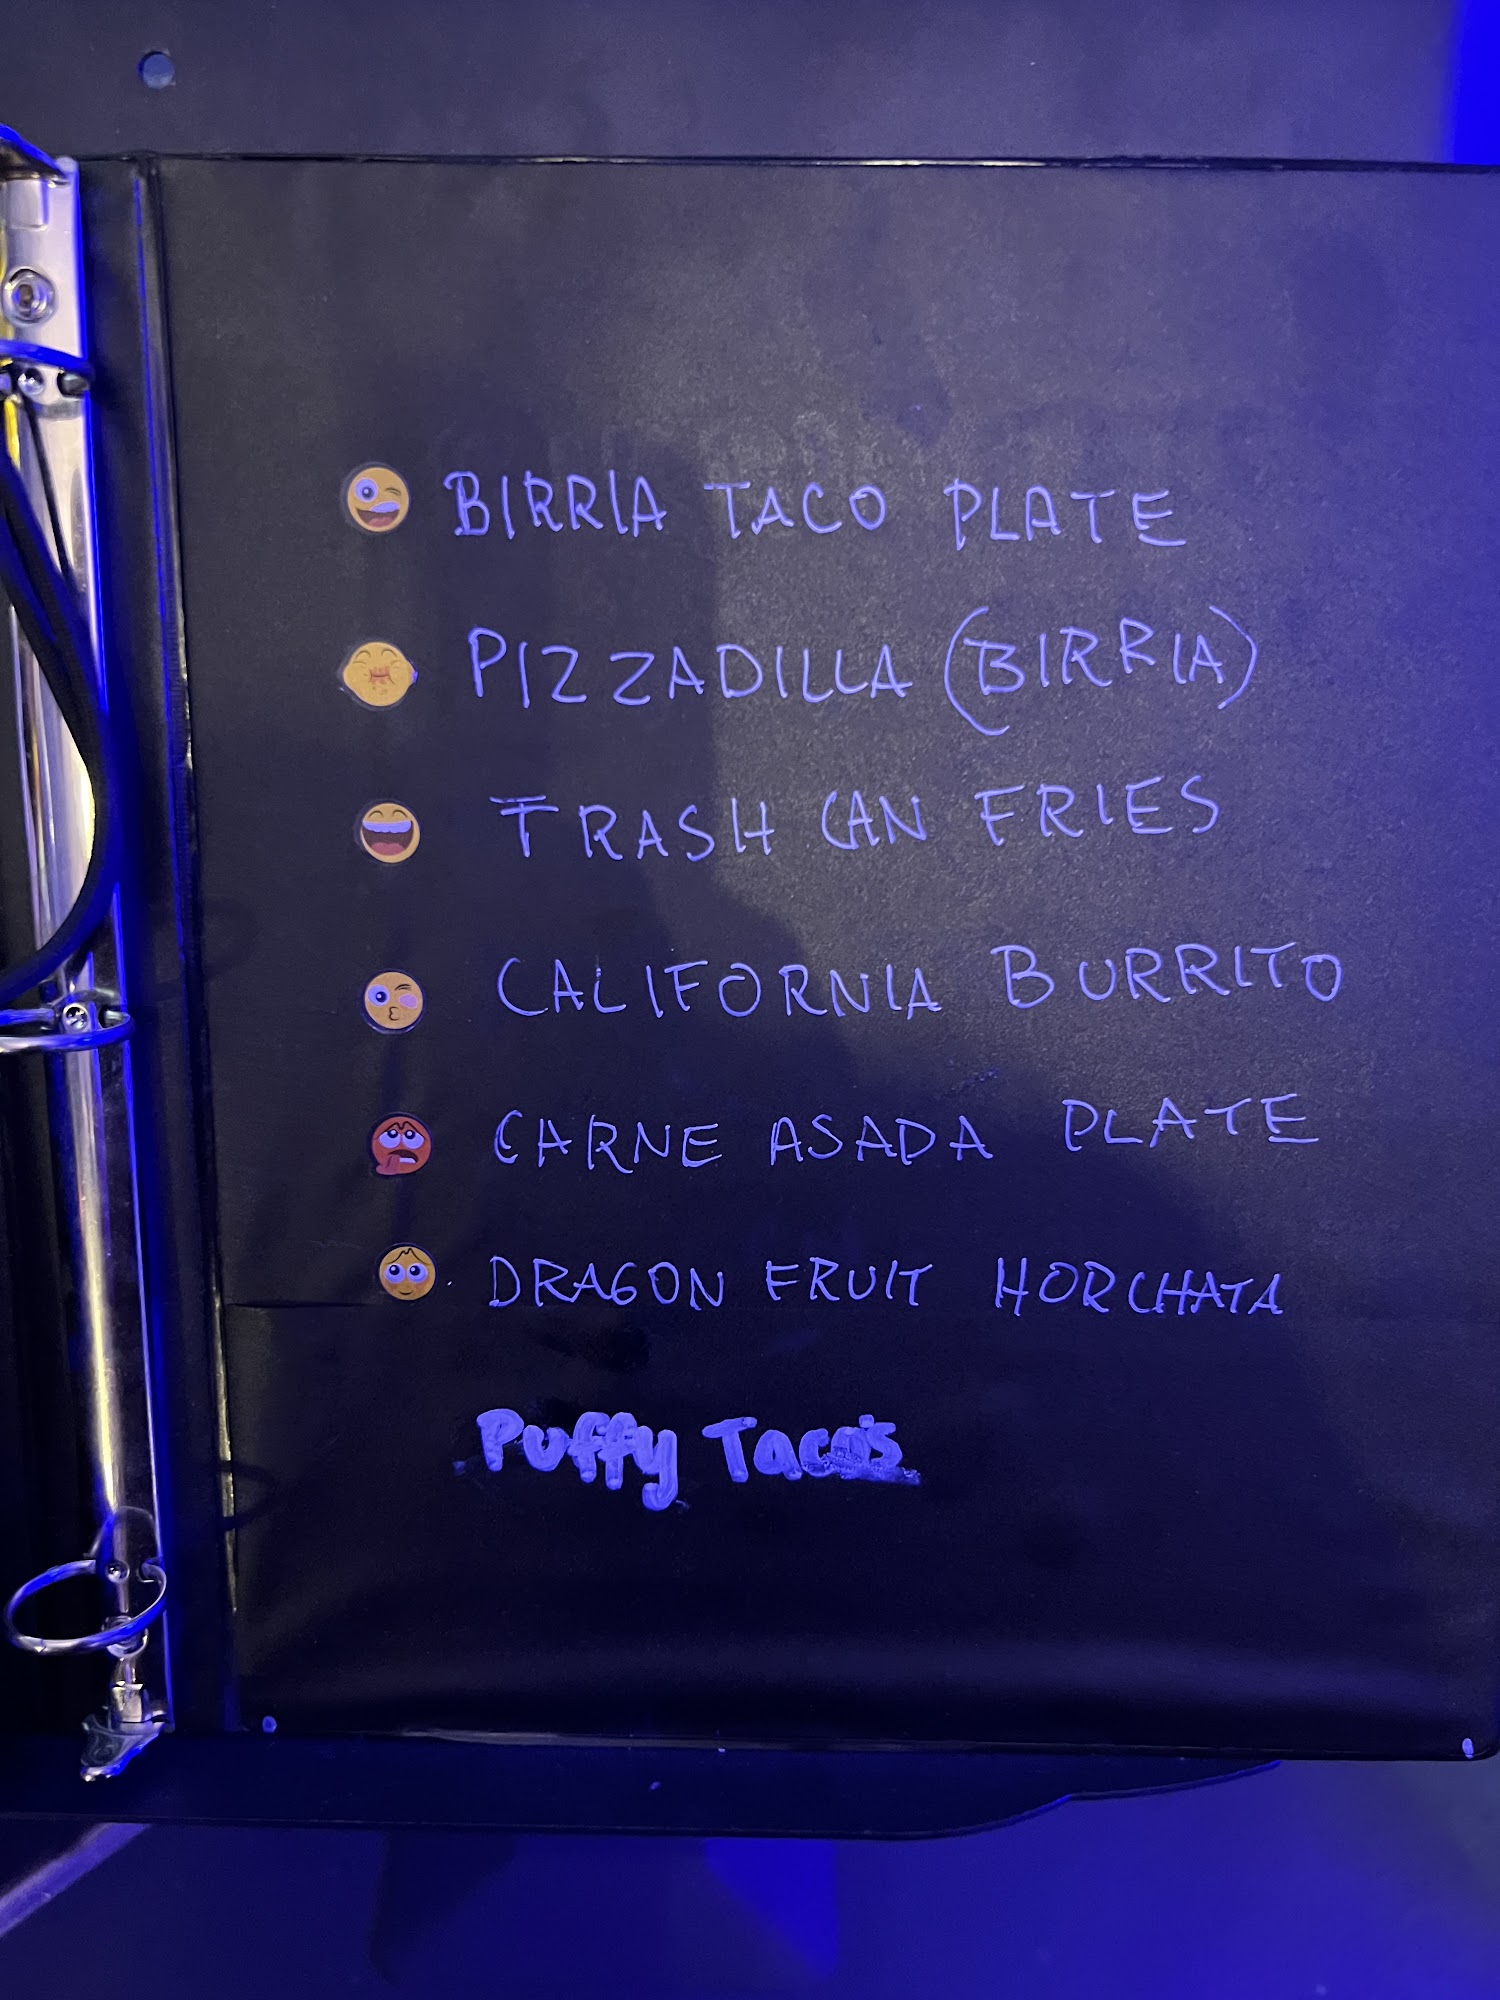 BIRRIA TACO PLATE
PIZZADILLA (BIRRIA)
TRASH CAN FRIES
CALIFORNIA BURRITO
CARNE ASADA PLATE
DRAGON FRUIT HORCHATA
Puffy Taco's